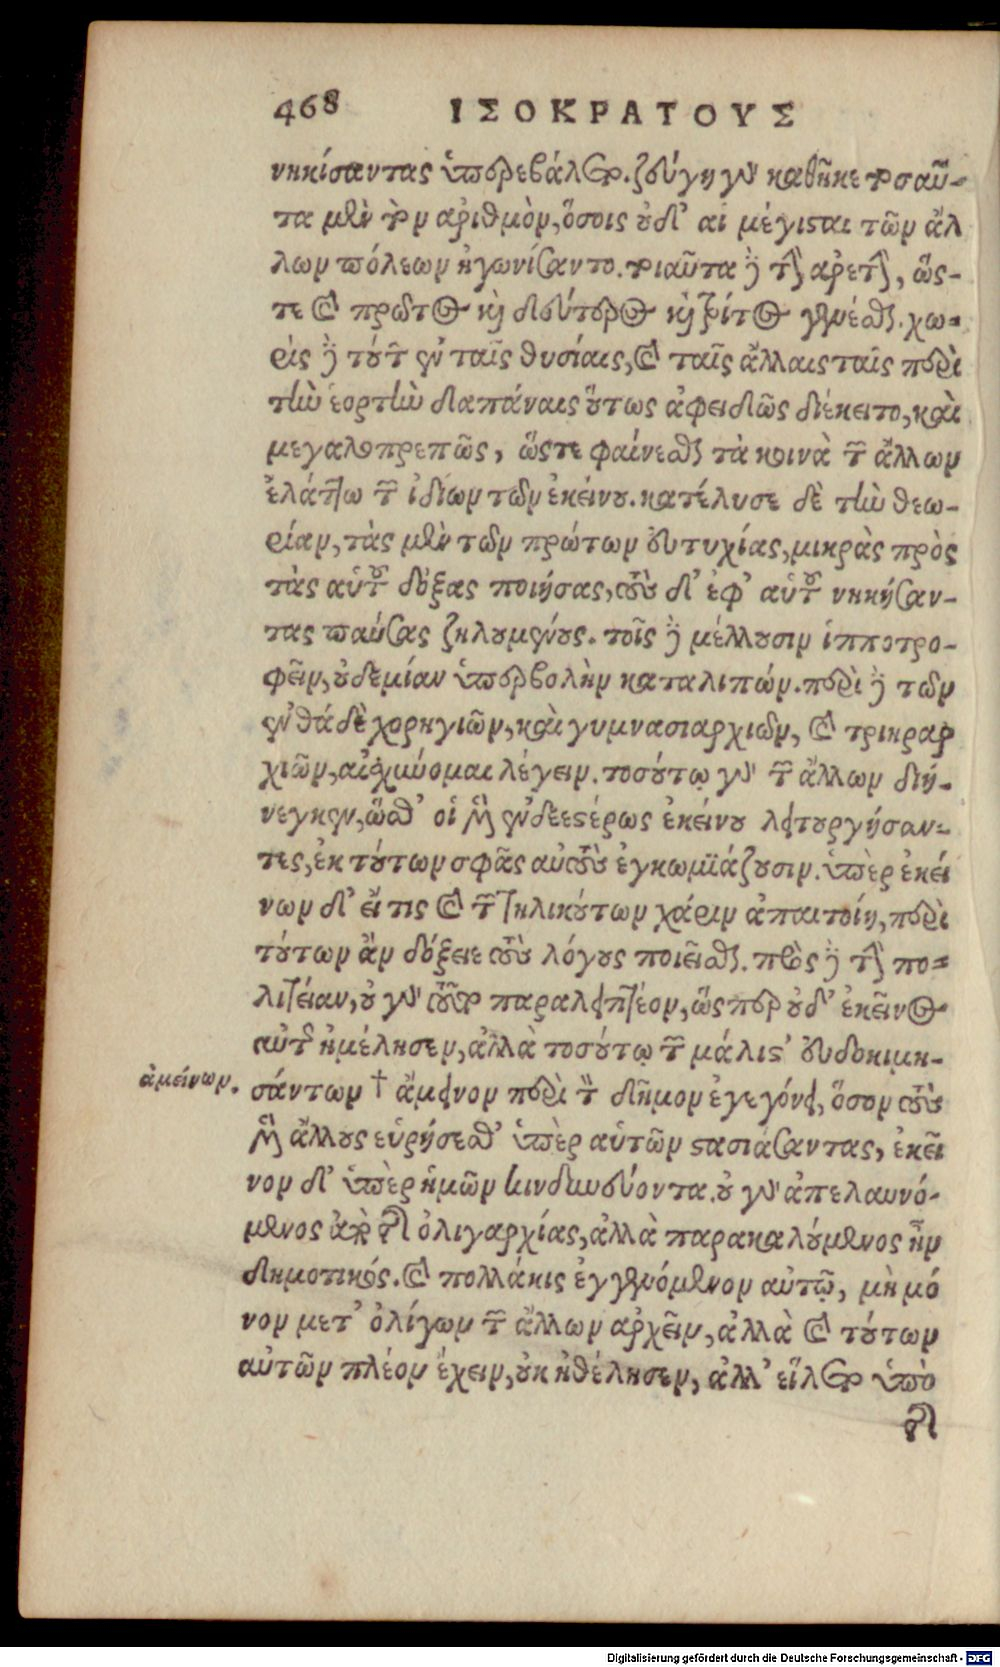 468 ΙΣΟΚΡΑΤΟΥΣ
νηκίσαντας ὑπερεβάλετο. ζεύγη γὰρ καθῆκε τοσαῦ-
τα μὲν τὸν ἀριθμὸν, ὅσοις οὐδ' αἱ μέγισται τῶν ἄλ
λων πόλεων ἠγωνίσαντο. τοιαῦτα δὲ τὴν ἀρετὴν, ὥς-
τε καὶ πρῶτος καὶ δεύτερος καὶ τρίτος γενέσθαι. χω-
ρὶς δὲ τούτων ἐν ταῖς θυσίαις, καὶ ταῖς ἄλλαις ταῖς περὶ
τὴν ἑορτὴν δαπάναις οὕτως ἀφειδῶς διέκειτο, καὶ
μεγαλοπρεπῶς, ὥστε φαίνεσθαι τὰ κοινὰ τῶν ἄλλων
ἐλάττω τῶν ἰδίων τῶν ἐκείνου. κατέλυσε δὲ τὴν θεω-
ρίαν, τὰς μὲν τῶν πρώτων εὐτυχίας, μικρὰς πρὸς
τὰς αὑτοῦ δόξας ποιήσας, τοὺς δ' ἐφ' αὑτοῦ νηκήσαν-
τας παύσας ζηλουμένους. τοῖς δὲ μέλλουσιν ἱπποτρο-
φεῖν, οὐδεμίαν ὑπερβολὴν καταλιπών. περὶ δὲ τῶν
ἐνθάδε χορηγιῶν, καὶ γυμνασιαρχιῶν, καὶ τριηραρ
χιῶν, αἰσχύνομαι λέγειν. τοσούτῳ γὰρ τῶν ἄλλων διή-
νεγκεν, ὥσθ' οἱ μὲν ἐνδεεστέρως ἐκείνου λειτουργήσαν-
τες, ἐκ τούτων σφᾶς αὐτοὺς ἐγκωμϊάζουσιν. ὑπὲρ ἐκεί
νων δ' εἴ τις καὶ τῶν τηλικούτων χάριν ἀπαιτοίη, περὶ
τούτων ἂν δόξειε τοὺς λόγους ποιεῖσθαι. πρὸς δὲ τὴν πο-
λιτείαν, οὐ γὰρ τοῦτο παραλειπτέον, ὥςπερ οὐδ' ἐκεῖνος
αὐτῆς ἠμέλησεν, ἀλλὰ τοσούτῳ τῶν μάλιστ' εὐδοκιμη-
ἀμείνων.
σάντων † ἄμεινον περὶ τὸν δῆμον ἐγεγόνει, ὅσον τοὺς
μὲν ἄλλους εὑρήσεθ' ὑπὲρ αὑτῶν στασιάσαντας, ἐκεῖ
νον δ' ὑπὲρ ἡμῶν κινδυνεύοντα. οὐ γὰρ ἀπελαυνό-
μενος ἀπὸ τῆς ὀλιγαρχίας, ἀλλὰ παρακαλούμενος ἦν
δημοτικός. καὶ πολλάκις ἐγγενόμενον αὐτῷ, μὴ μό
νον μετ' ὀλίγων τῶν ἄλλων ἀρχεῖν, ἀλλὰ καὶ τούτων
αὐτῶν πλέον ἔχειν, οὐκ ἠθέλησεν, ἀλλ' εἵλετο ὑπὸ
τῆς
Digitalisierung gefördert durch die Deutsche Forschungsgemeinschaft - DFG